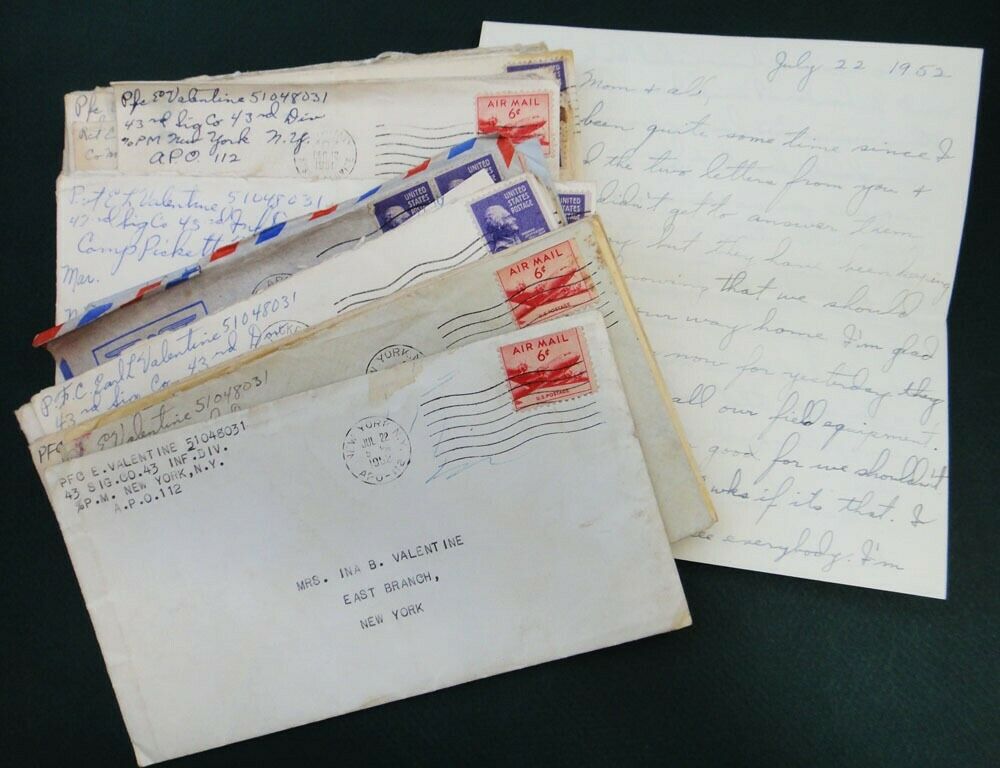 Pfc E Valentine 51048031
43rd Sig Co 43rd Div
℅ PM New York N.Y.
A.P.O. 112
AIR MAIL
6¢
Pvt E L Valentine 51048031
43rd Sig Co 43rd Inf Div
Camp Pickett
UNITED
STATES
POSTAGE
UNITED
STATES
POSTAGE
P.F.C. Earl L Valentine 51048031
43rd Sig Co. 43rd
AIR MAIL
6¢
U.S. POSTAGE
PFC E Valentine 51048031
NEW YORK
AIR MAIL
6¢
U.S. POSTAGE
PFC E. VALENTINE 51048031
43 SIG.CO.43 INF.DIV.
℅P.M. NEW YORK,N.Y.
A.P.O.112
NEW YORK, N.Y.
JUL 22
1952
APO-112
MRS. INA B. VALENTINE
EAST BRANCH,
NEW YORK
July 22 1952
Mom & all,
been quite some time since I
the two letters from you &
didn't get to answer them
but they have been keeping
that we should
our way home. I'm glad
now for yesterday they
all our field equipment
good for we shouldn't
wks if its that. I
everybody. I'm